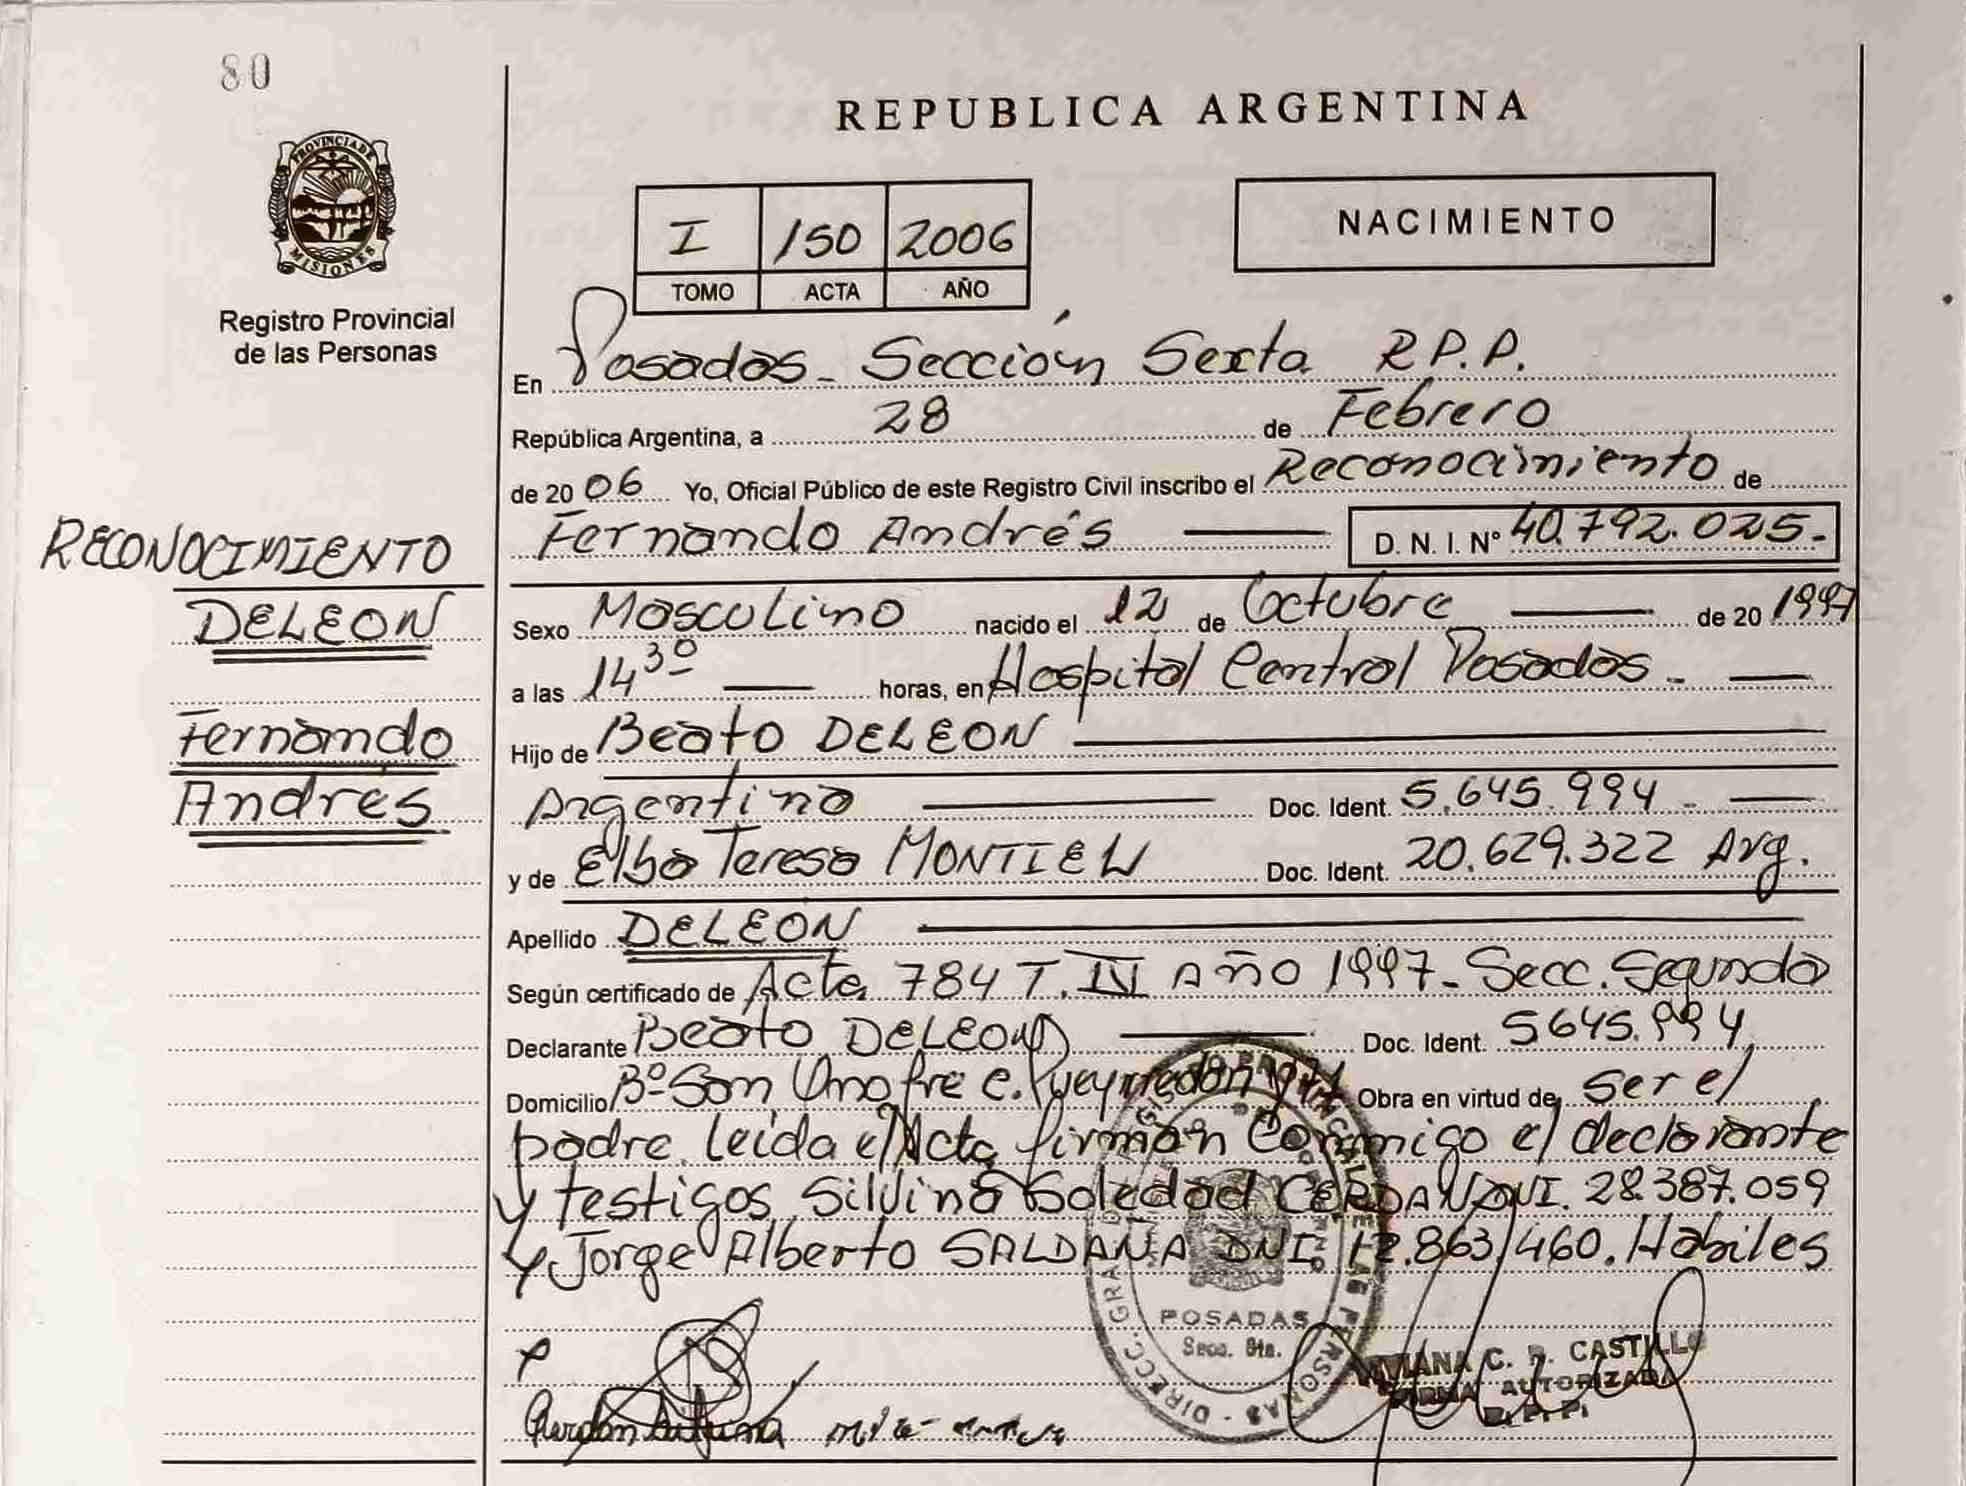 80
REPUBLICA ARGENTINA
PROVINCIA DE MISIONES
Registro Provincial
de las Personas
I 150 2006
TOMO ACTA AÑO
NACIMIENTO
En Posadas - Sección Sexta R.P.P.
República Argentina, a 28 de Febrero
de 20 06 Yo, Oficial Público de este Registro Civil inscribo el Reconocimiento de
Fernando Andrés D. N. I. Nº 40.792.025.-
RECONOCIMIENTO
DELEON
Fernando
Andrés
Sexo Masculino nacido el 12 de Octubre de 20 1997
a las 14 30 horas, en Hospital Central Posadas -
Hijo de Beato DELEON
Argentino Doc. Ident. 5.645.994 -
y de Elba Teresa MONTIEL Doc. Ident. 20.629.322 Arg.
Apellido DELEON
Según certificado de Acta 784 T. IV Año 1997 - Secc. Segunda
Declarante Beato DELEON Doc. Ident. 5645.994
Domicilio Bº San Onofre C. Pueyrredón Obra en virtud de ser el
padre. leída el Acta firman Conmigo el declarante
y testigos Silvina Soledad CERDAN DNI. 28.387.059
y Jorge Alberto SALDAÑA DNI. 12.863.460. Habiles
POSADAS
Secc. 6ta.
C. R. CASTILLO
FIRMA AUTORIZADA
R. P. P.